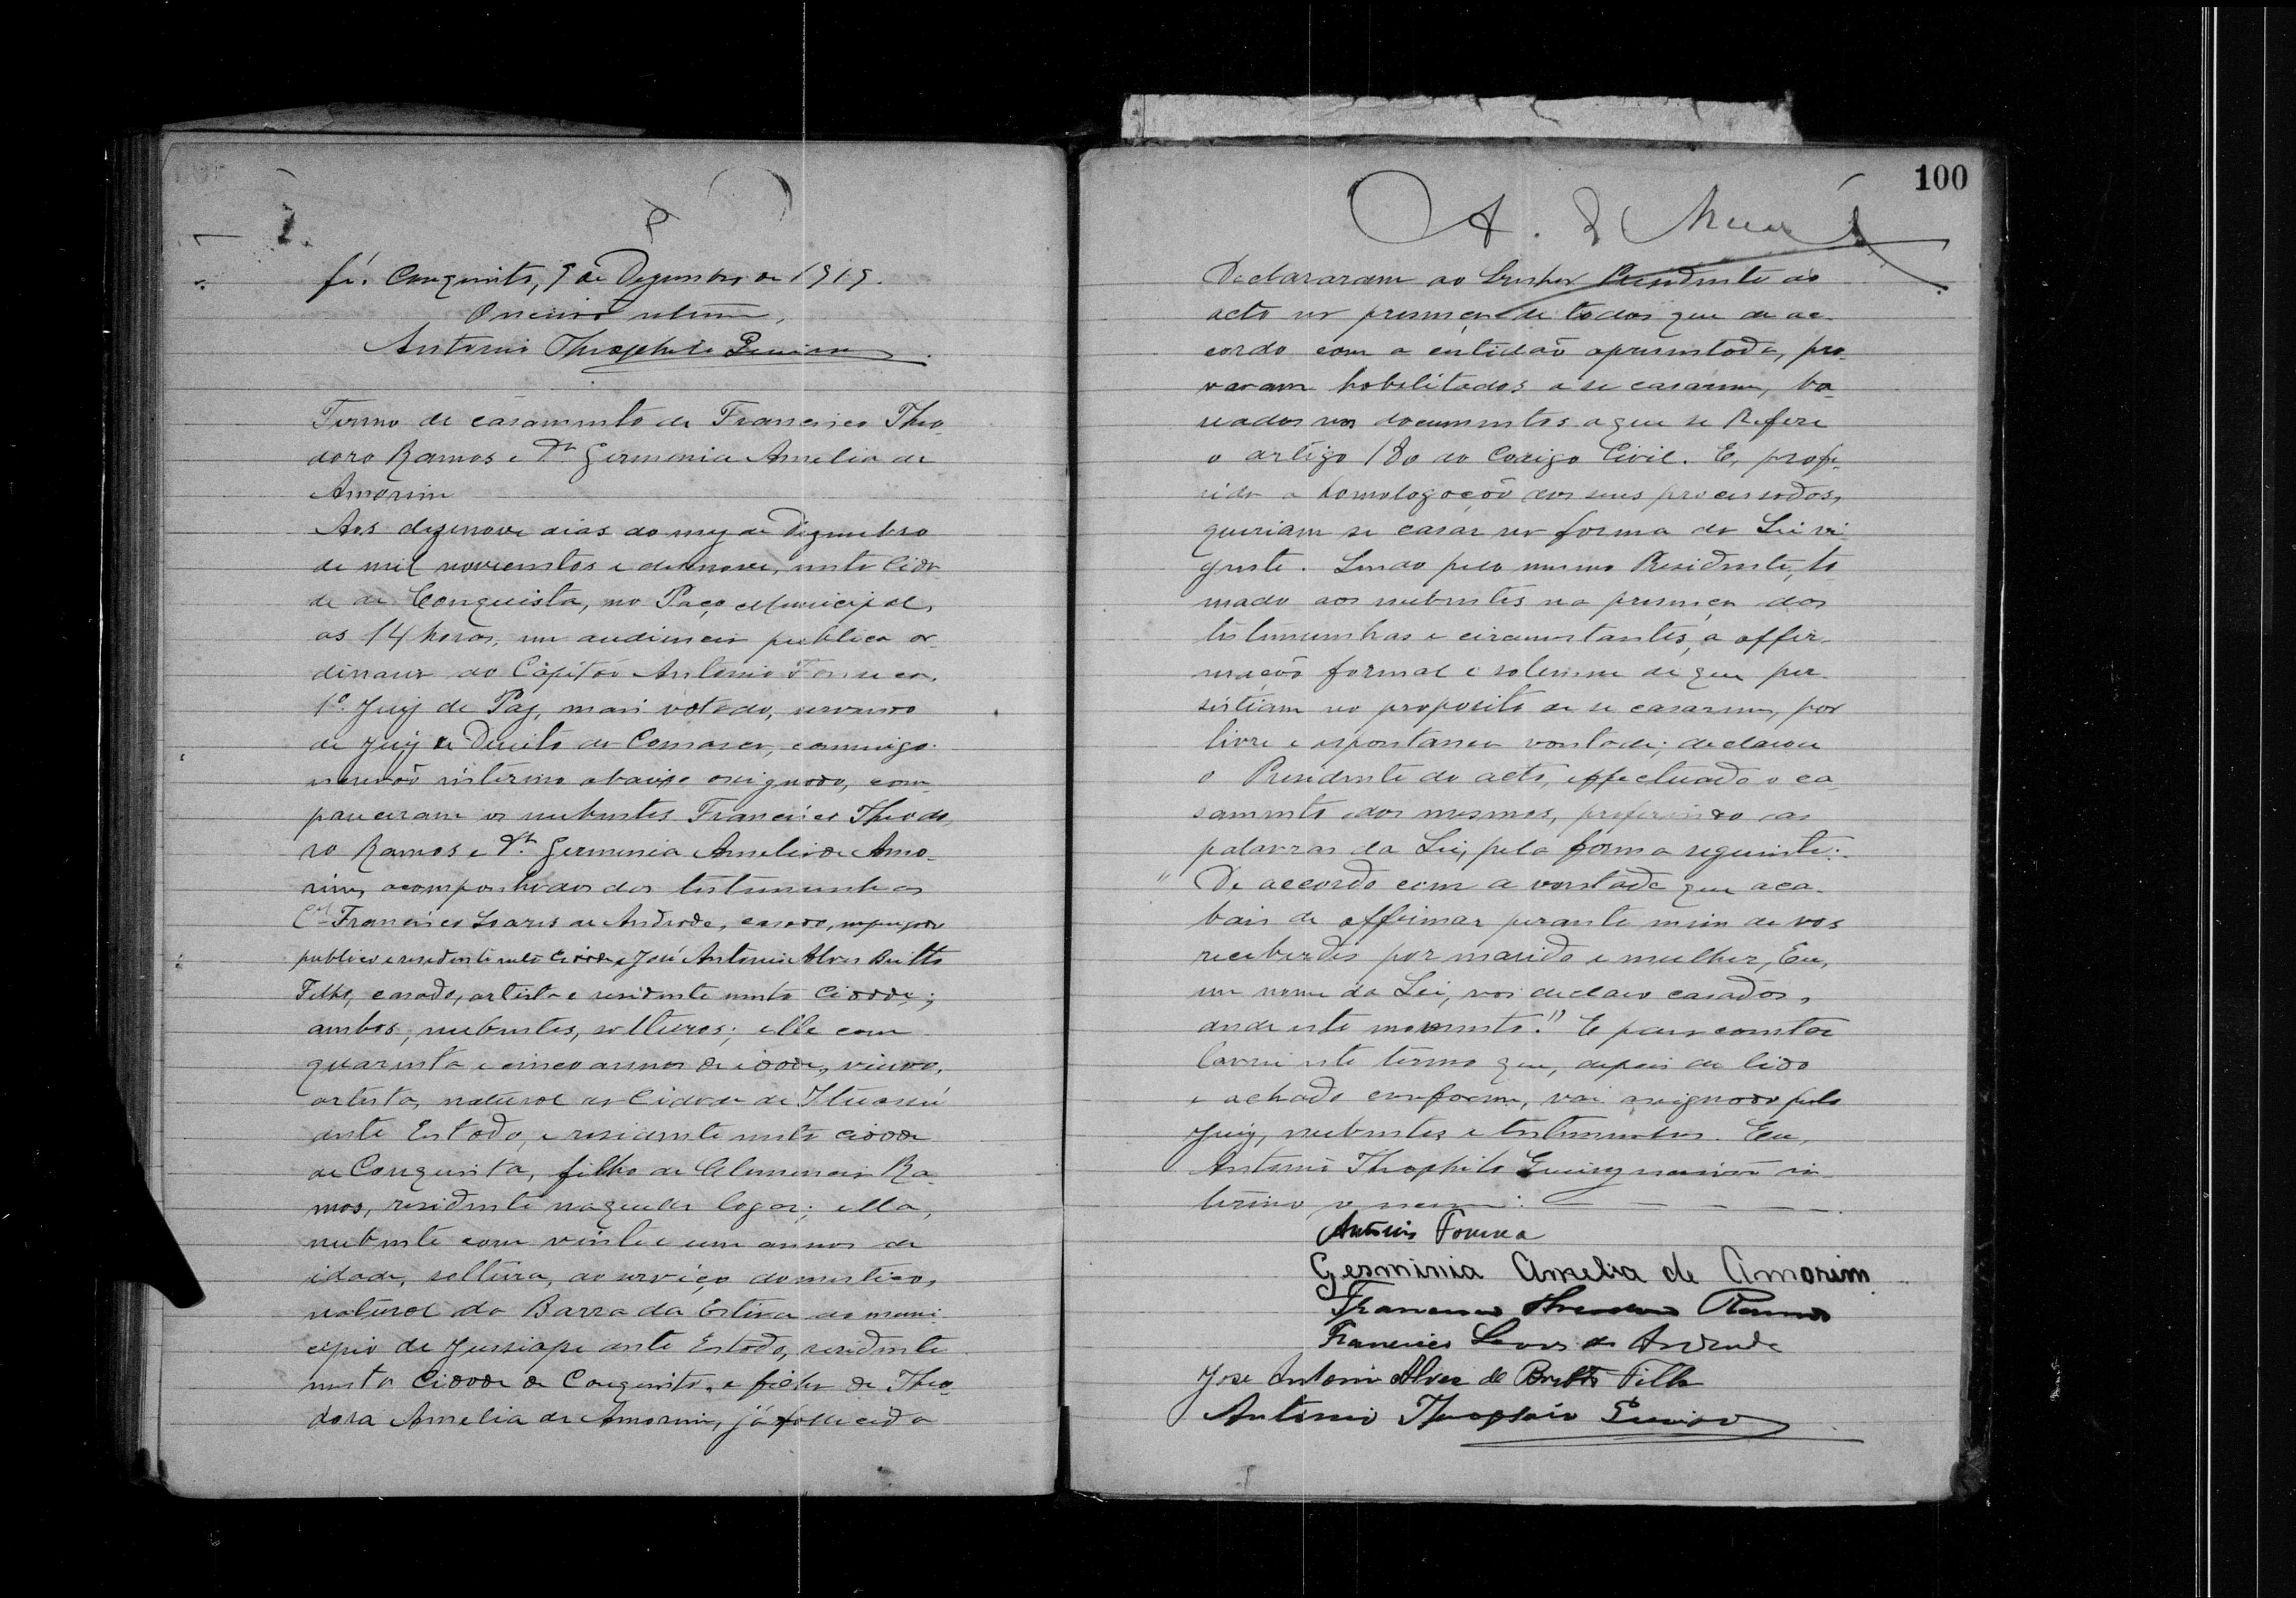 100
fé. Conquista, 9 de Dezembro de 1919.
O escrivão interino,
Antonio Theophilo
Termo de casamento de Francisco Theo-
doro Ramos e Dª Germinia Amelia de
Amorim
Aos dezenove dias do mez de Dezembro
de mil novecentos e desenove, nesta Cida-
de de Conquista, no Paço Municipal,
as 14 horas, em audiencia publica or-
dinaria do Capitão Antonio Fonseca,
1º Juiz de Paz, mais votado, servindo
de Juiz de Direito da Comarca, commigo
escrivão interino abaixo assignado, com-
pareceram os nubentes Francisco Theodo-
ro Ramos e Dª Germinia Amelia de Amo-
rim, acompanhados das testemunhas
Cel Francisco Soares de Andrade, casado, empregado
publico e residente nesta Cidade e José Antonio Alves Britto
Filho, casado, artista e residente nesta Cidade;
ambos, nubentes, solteiros; elle com
quarenta e cinco annos de idade, viuvo,
artista, natural da Cidade de Ituassú
deste Estado, e residente nesta cidade
de Conquista, filho de Clemencia Ra-
mos, residente naquelle logar; ella,
nubente com vinte e um annos de
idade, solteira, do serviço domestico,
natural da Barra da Estiva do muni-
cipio de Jussiape deste Estado, residente
nesta Cidade de Conquista, e filha de Theo-
dora Amelia de Amorim, já fallecida
Declararam ao Senhor Presidente do
acto na presença de todos que de ac-
cordo com a certidão apresentada, pro-
varam habilitados a se casarem, ba-
seados nos documentos a que se refere
o artigo 180 do Codigo Civil. E, profe-
rida a homologação dos seus processados,
queriam se casar na forma da Lei vi-
gente. Sendo pelo mesmo Presidente, to-
mado aos nubentes na presença das
testemunhas e circumstantes, a affir-
mação formal e solemne de que per-
sistiam no proposito de se casarem, por
livre e espontanea vontade; declarou
o Presidente do acto, effectuado o ca-
samento dos mesmos, proferindo as
palavras da Lei, pela forma seguinte:-
"De accordo com a vontade que aca-
bais de affirmar perante mim de vos
receberdes por marido e mulher, Eu,
em nome da Lei, vos declaro casados,
desde este momento." E para constar
lavrei este termo que, depois de lido
e achado conforme, vai assignado pelo
Juiz, nubentes e testemunhas. Eu,
Antonio Theophilo escrivão in-
terino, o escrevi:
Antonio Fonseca
Germinia Amelia de Amorim
Francisco Theodoro Ramos
Francisco Soares de Andrade
José Antonio Alves de Britto Filho
Antonio Theophilo